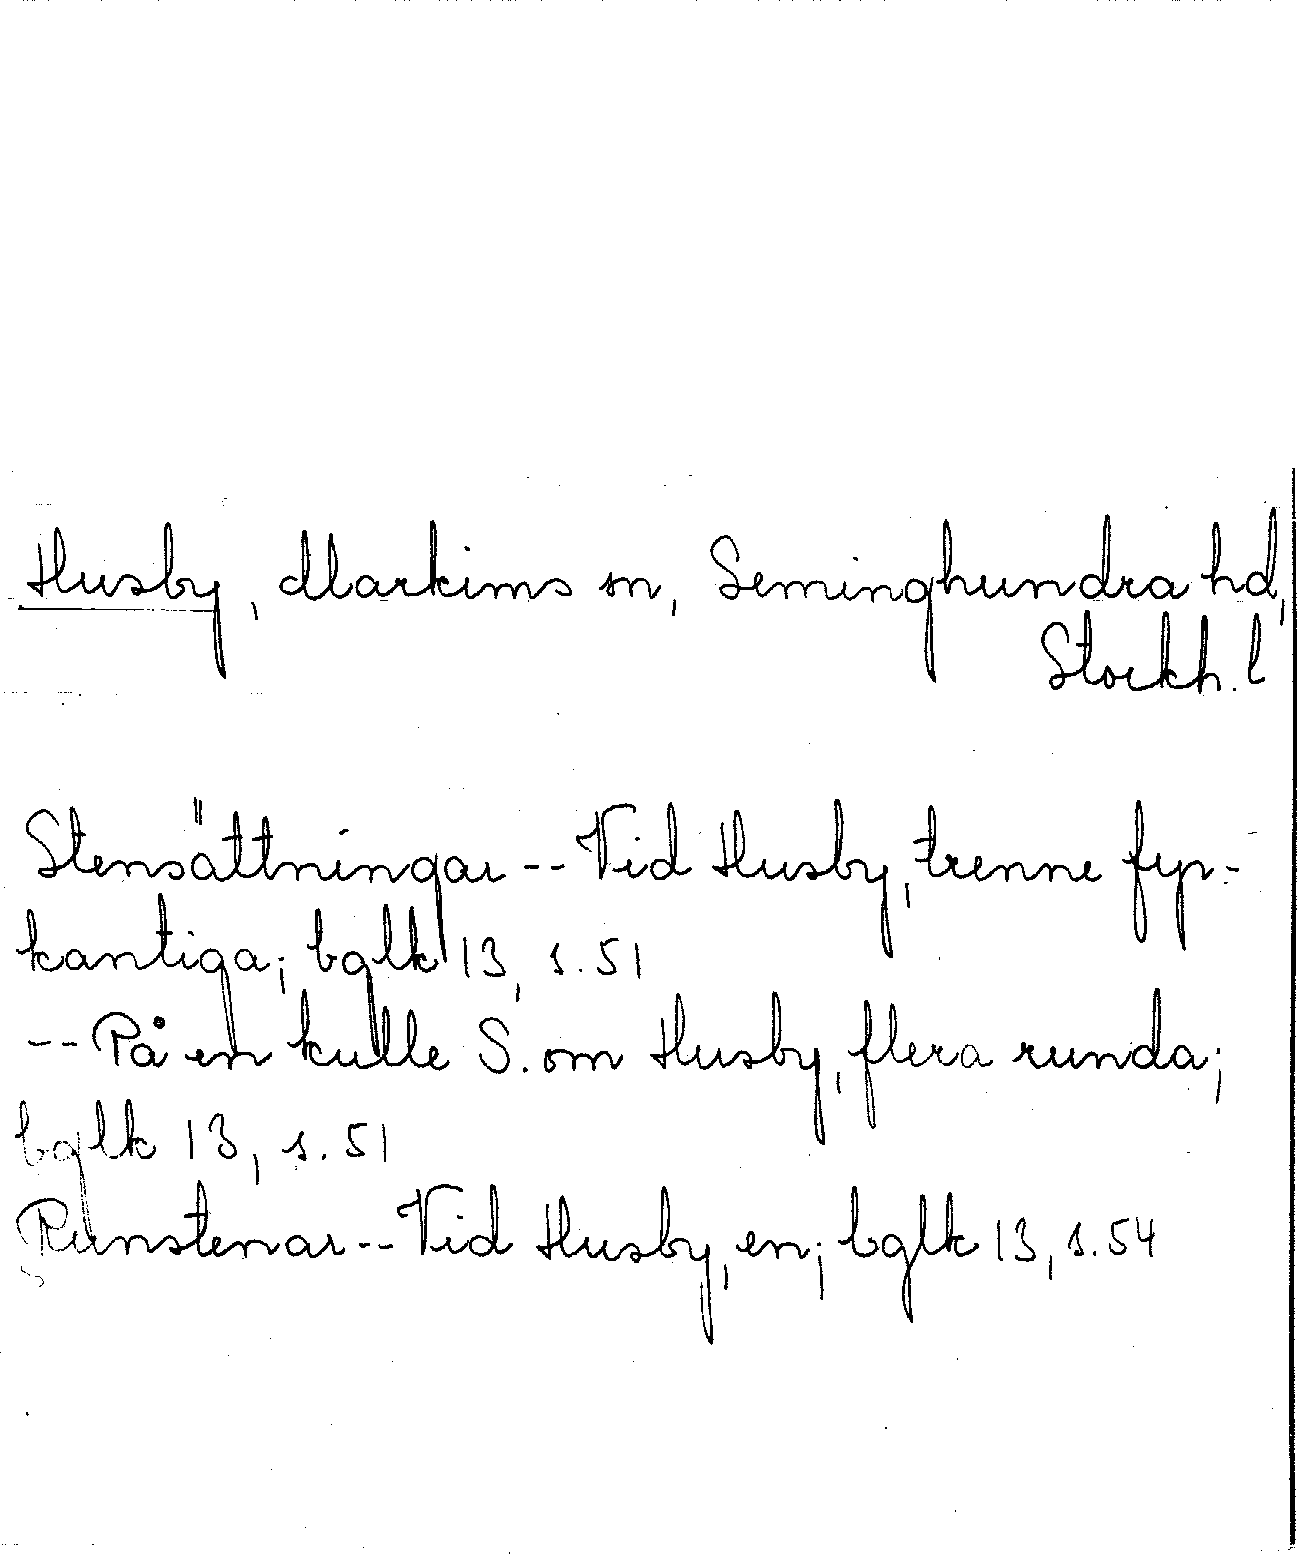 Husby, Markims sn, Seminghundra hd,
Stockh. l
Stensättningar -- Vid Husby, trenne fyr-
kantiga; bglk 13, s. 51
-- På en kulle S. om Husby, flera runda;
bglk 13, s. 51
Runstenar -- Vid Husby, en; bglk 13, s. 54